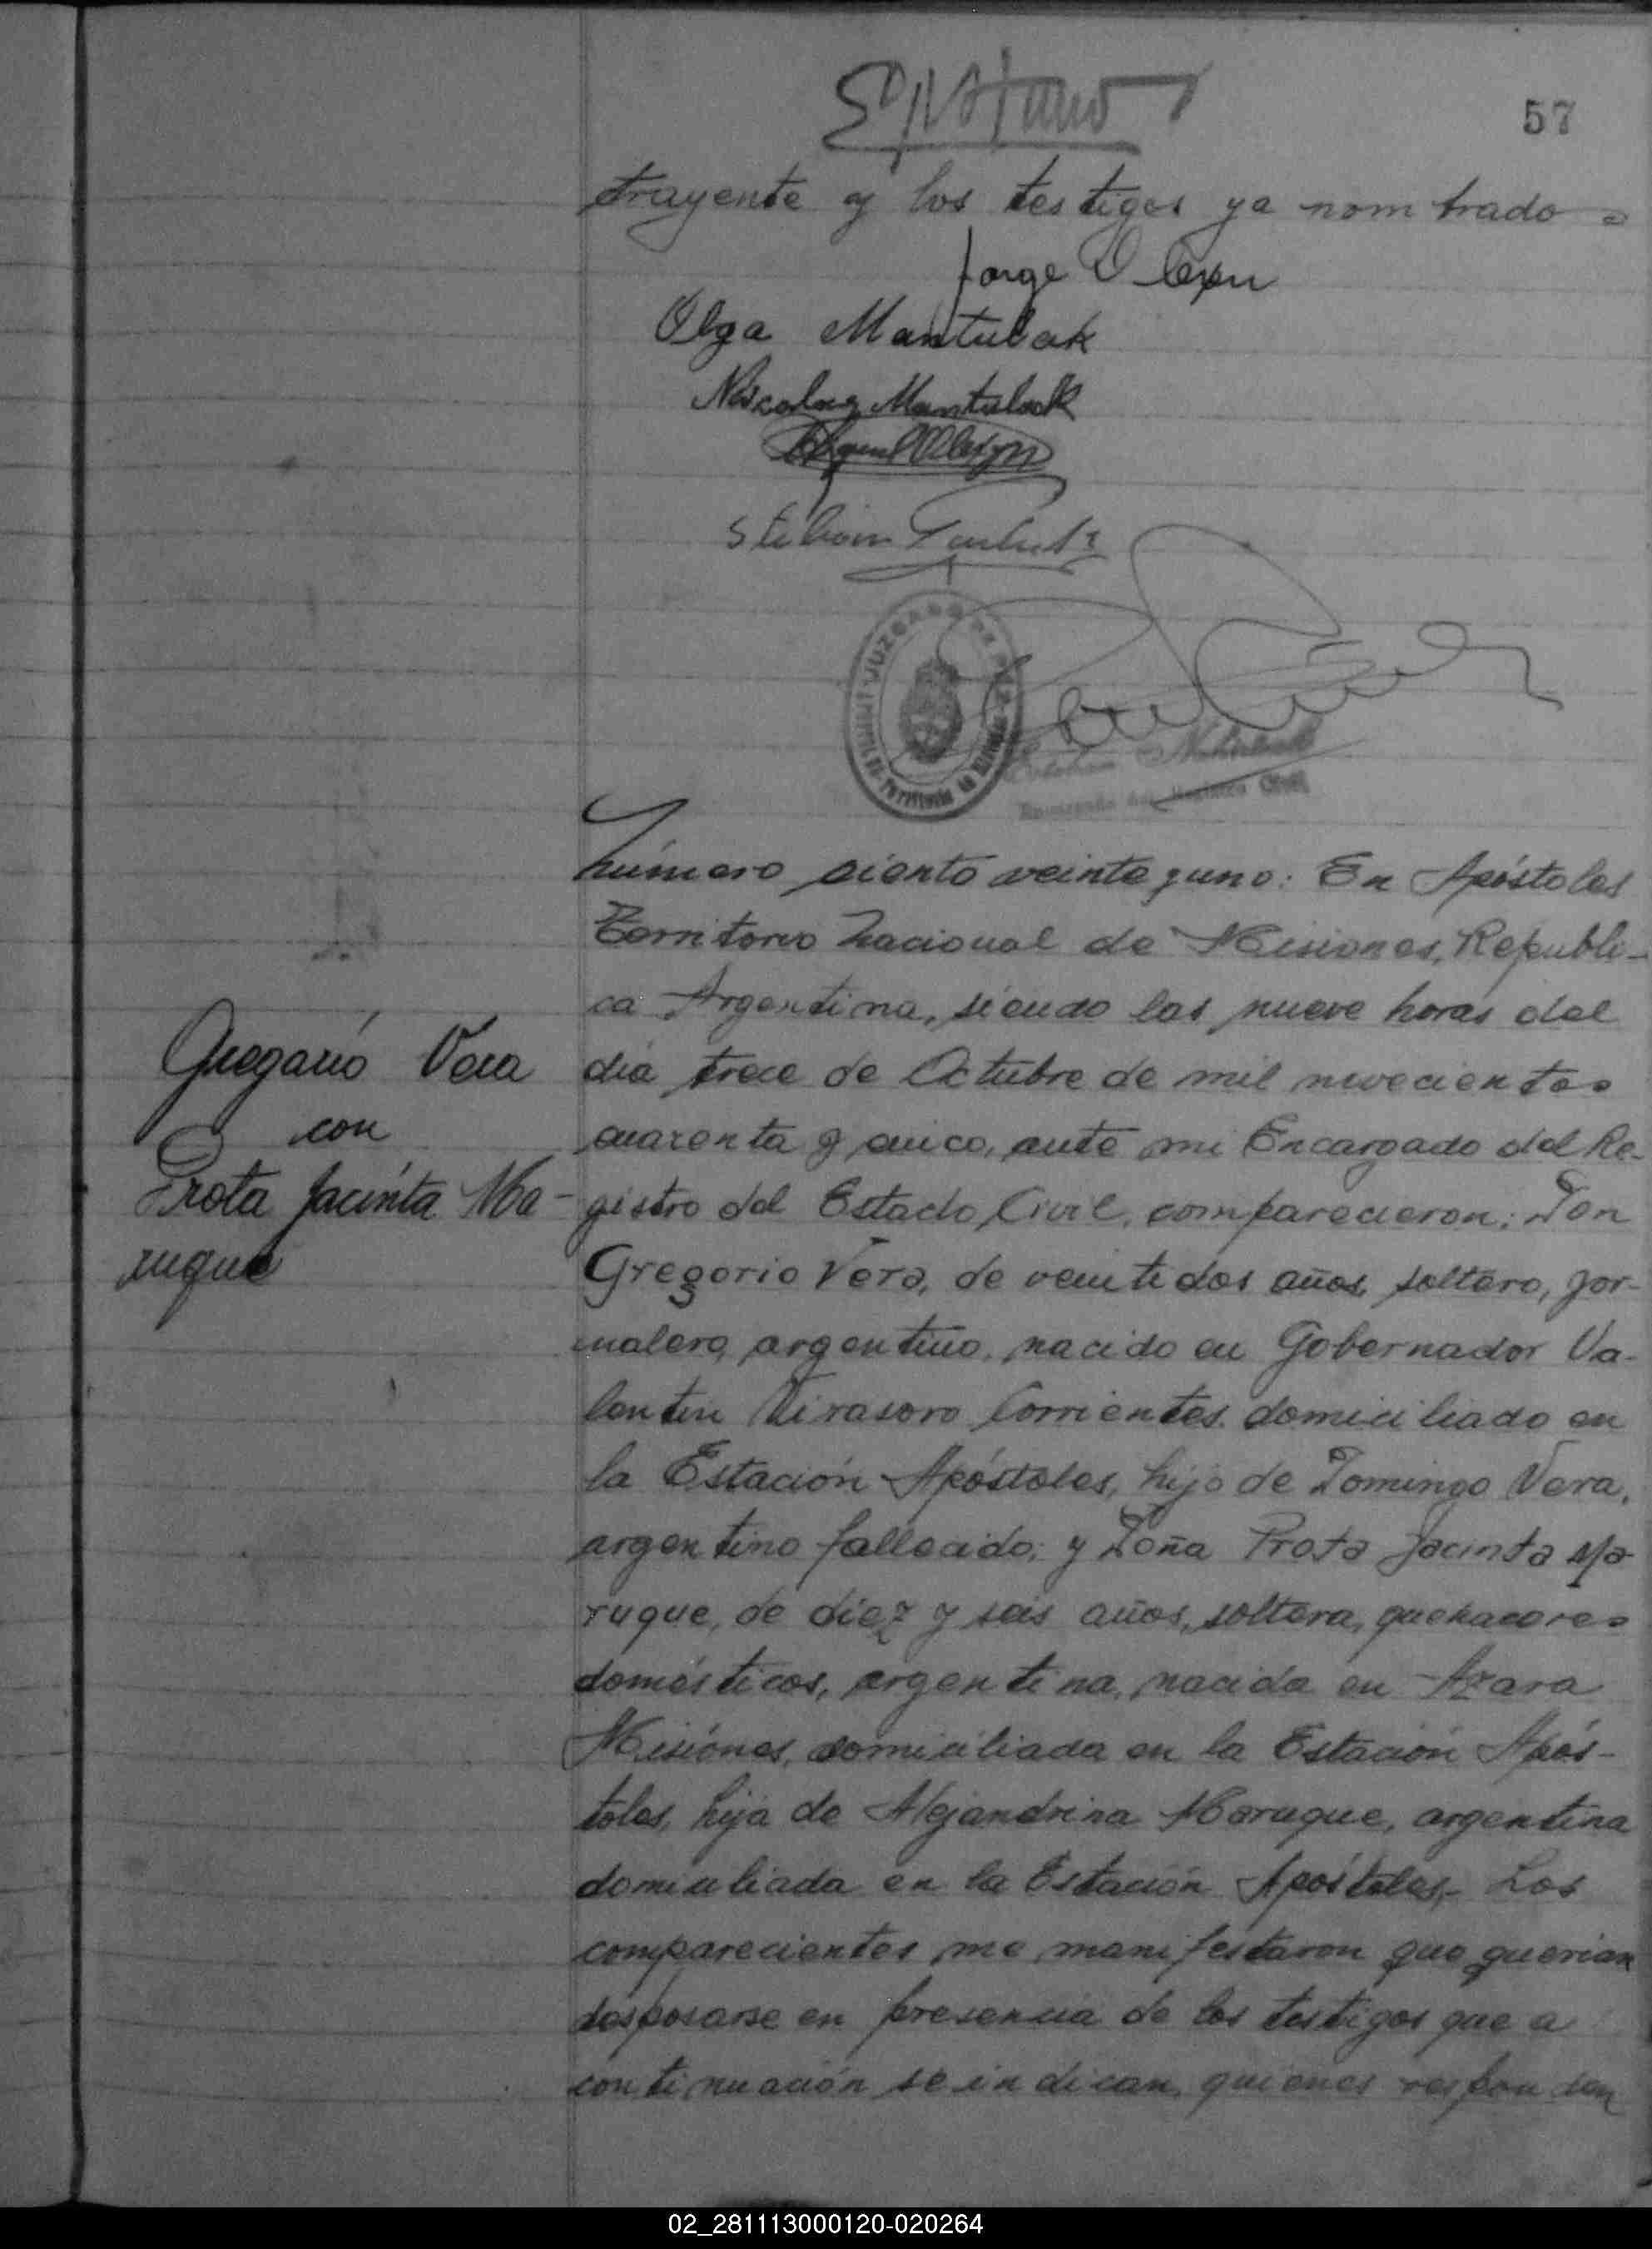 57
trayente y los testigos ya nombrados
Jorge Olexyn
Olga Mantulak
Nicolas Mantulak
Olexyn
Stelian
JUZGADO DE PAZ
Territorio de Misiones
Encargado del Registro Civil
Número ciento veinte y uno: En Apóstoles
Territorio Nacional de Misiones, Republi-
ca Argentina, siendo las nueve horas del
día trece de Octubre de mil novecientos
cuarenta y cinco, ante mi Encargado del Re-
gistro del Estado Civil, comparecieron: Don
Gregorio Vera, de veintidos años, soltero, jor-
nalero, argentino, nacido en Gobernador Va-
lentin Virasoro Corrientes, domiciliado en
la Estación Apóstoles, hijo de Domingo Vera,
argentino fallecido; y Doña Prota Jacinta Ma-
ruque, de diez y seis años, soltera, quehaceres
domésticos, argentina, nacida en Azara
Misiónes, domiciliada en la Estación Após-
toles, hija de Alejandrina Maruque, argentina
domiciliada en la Estación Apóstoles.- Los
comparecientes me manifestaron que querian
desposarse en presencia de los testigos que a
continuación se indican, quienes responden
Gregorio Vera
con
Prota Jacinta Ma-
ruque
02_281113000120-020264